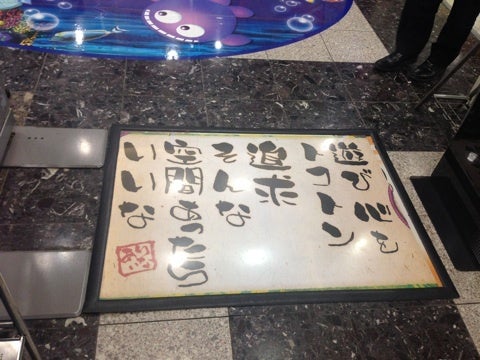 遊び心も
トコトン
追求
そんな
空間あったら
いいな